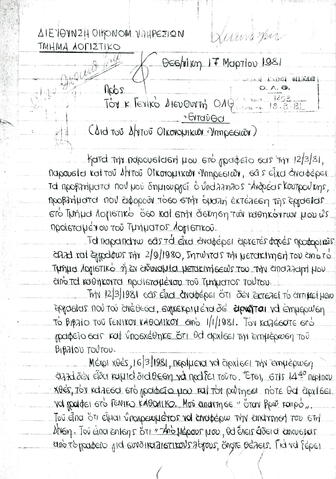 ΔΙΕΥΘΥΝΣΗ ΟΙΚΟΝΟΜ ΥΠΗΡΕΣΙΩΝ
ΤΜΗΜΑ ΛΟΓΙΣΤΙΚΟ
Θεσ/νίκη 17 Μαρτίου 1981
Προς
Τον κ Γενικό Διευθυντή ΟΛΘ
Ενταύθα
(Δια του Δ/ντού Οικονομικών Υπηρεσιών)
Ο.Λ.Θ.
Κατά την παρουσίασή μου στο γραφείο σας την 12/3/81,
παρουσία και του Δ/ντού Οικονομικών Υπηρεσιών, σας είχα αναφέρει
τα προβλήματα που μου δημιουργεί ο υπάλληλος Ανδρέας
προβλήματα που αφορούν τόσο στην ομαλή εκτέλεση της εργασίας
στο Τμήμα Λογιστικό όσο και στην άσκηση των καθηκόντων μου ως
προϊσταμένου του Τμήματος Λογιστικού.
Τα παραπάνω σας τα είχα αναφέρει αρκετές φορές προφορικώς
αλλά και εγγράφως την 2/9/1980, ζητώντας την μετακίνησή του από το
Τμήμα Λογιστικό ή εν αδυναμία μετακινήσεώς του, την απαλλαγή μου
από τα καθήκοντα προϊσταμένου του Τμήματος τούτου.
Την 12/3/1981 σας είχα αναφέρει ότι δεν εκτελεί το αντικείμενο
εργασίας που του ανέθεσα, συγκεκριμένα δε αρνείται να ενημερώσει
το βιβλίο του Γενικού Καθολικού από 1/1/1981. Τον καλέσατε στο
γραφείο σας και υποσχέθηκε ότι θα αρχίσει την ενημέρωση του
βιβλίου τούτου.
Μέχρι χθες, 16/3/1981, περίμενα να αρχίσει την ενημέρωση
αλλά δεν είχε καμία διάθεση να πράξει τούτο. Έτσι, στις 14 περίπου
χθες, τον κάλεσα στο γραφείο μου και τον ρώτησα πότε θα αρχίσει
να γράφει στο Γενικό Καθολικό. Μου απάντησε "όταν βρω καιρό".
Του είπα ότι είμαι υποχρεωμένος να αναφέρω την απάντησή του στη
Δ/νση. Του είπα επίσης ότι "από μέρους μου, δεν έχεις άδεια απουσίας
από το γραφείο για συνδικαλιστικούς λόγους, όποτε θέλεις. Για να φέρει